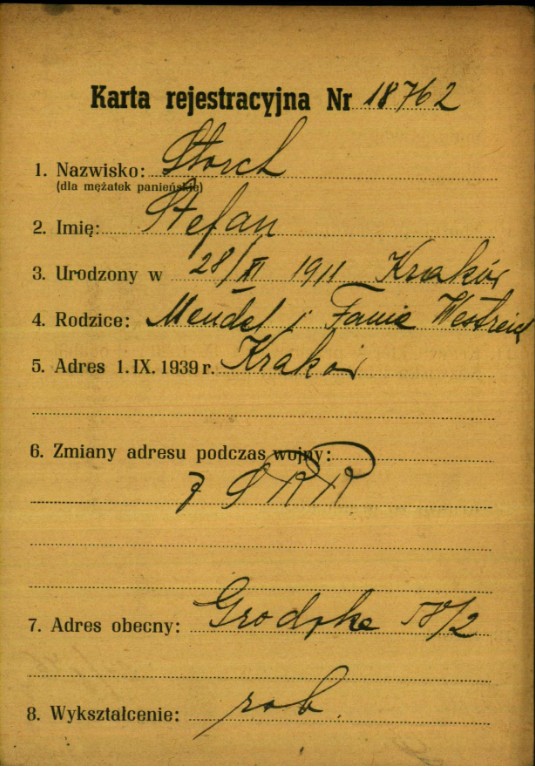 Karta rejestracyjna Nr 18762
1. Nazwisko: Storch
(dla mężatek panieńskie)
2. Imię: Stefan
3. Urodzony w 28/XI 1911 Kraków
4. Rodzice: Mendel i Fania Westreich
5. Adres 1. IX. 1939 r. Kraków
6. Zmiany adresu podczas wojny:
Z S R R
7. Adres obecny: Grodzka 58/2
8. Wykształcenie: rob.